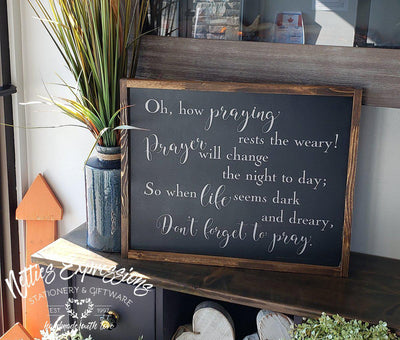 Oh, how praying
rests the weary!
Prayer will change
the night to day;
So when life seems dark
and dreary,
Don't forget to pray.
Netties Expressions
STATIONERY & GIFTWARE
EST 1997
Handmade with love